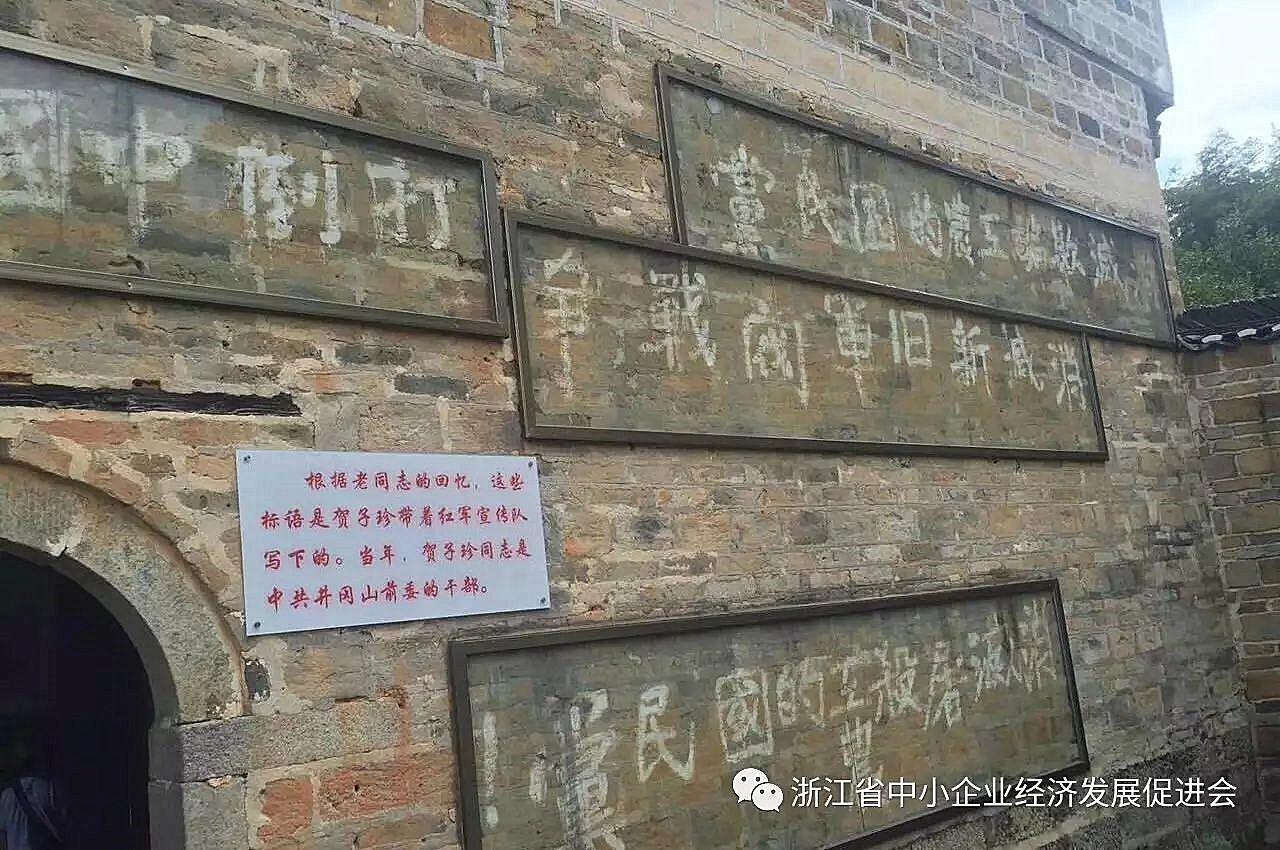 打倒中
滅欺騙工農的國民黨
消滅新旧軍閥戰爭
消滅屠殺工農的國民黨！
根据老同志的回忆，这些
标语是贺子珍带着红军宣传队
写下的。当年，贺子珍同志是
中共井冈山前委的干部。
浙江省中小企业经济发展促进会